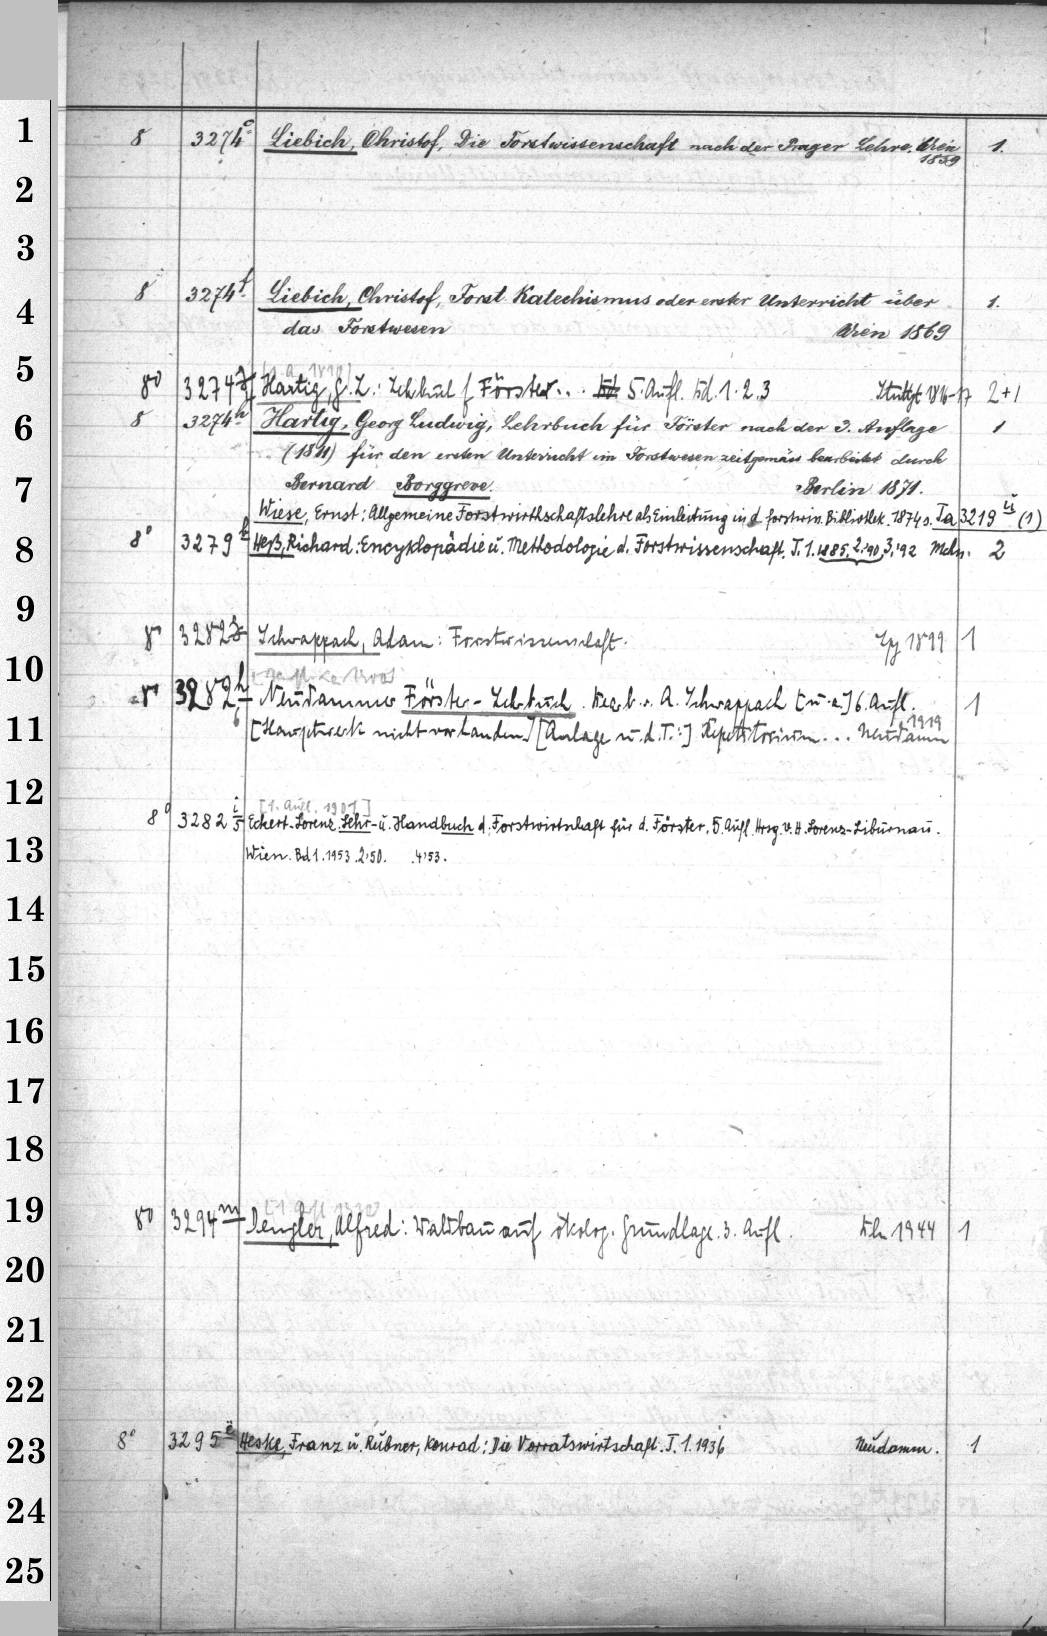 1 8 3274e Liebich, Christof, Die Forstwissenschaft nach der Prager Lehre. Wien 1. 
1859
2
3
4 8 3274f Liebich, Christof, Forst Katechismus oder erster Unterricht über 1.
das Forstwesen Wien 1869
5 [1. A. 1810]
8° 3274g Hartig, G. L.: Lehrbuch f Förster... 5. Aufl. Bd. 1. 2. 3 Stuttgt 1816-17 2+1
6 8 3274h Hartig, Georg Ludwig, Lehrbuch für Förster nach der 3. Auflage 1
(1811) für den ersten Unterricht im Forstwesen zeitgemäss bearbeitet durch
7 Bernard Borggreve. Berlin 1871.
Wiese, Ernst: Allgemeine Forstwirthschaftslehre als Einleitung in d. forstwiss. Bibliothek. 1874 s. Ia 3219 ü (1)
8 8° 3279 Heß, Richard: Encyklopädie u. Methodologie d. Forstwissenschaft. T. 1. 1885. 2.'90, 3.'92 Mchn. 2
9
8° 3282 Schwappach, Adam: Forstwissenschaft. Lpz 1899 1
10
8° 3282h Neudammer Förster-Lehrbuch. Bearb. v. A. Schwappach [u. a.] 6. Aufl. 1
6 1919
11 [Hauptwerk nicht vorhanden] [Anlage u. d. T.:] Repetitorium... Neudamm
12 [1. Aufl. 1907.]
8° 3282 i/5 Eckert-Lorenz Lehr- u. Handbuch d. Forstwirtschaft für d. Förster. 5. Aufl. Hrsg. v. H. Lorenz-Liburnau.
13 Wien. Bd 1. 1953. 2.'50. 4.'53.
14
15
16
17
18
19 [1. Aufl. 1930]
8° 3294m Dengler, Alfred: Waldbau auf ökolog. Grundlage. 3. Aufl. Bln 1944 1
20
21
22
23 8° 3295ë Heske, Franz u. Rubner, Konrad: Die Vorratswirtschaft. T. 1. 1936 Neudamm. 1
24
25